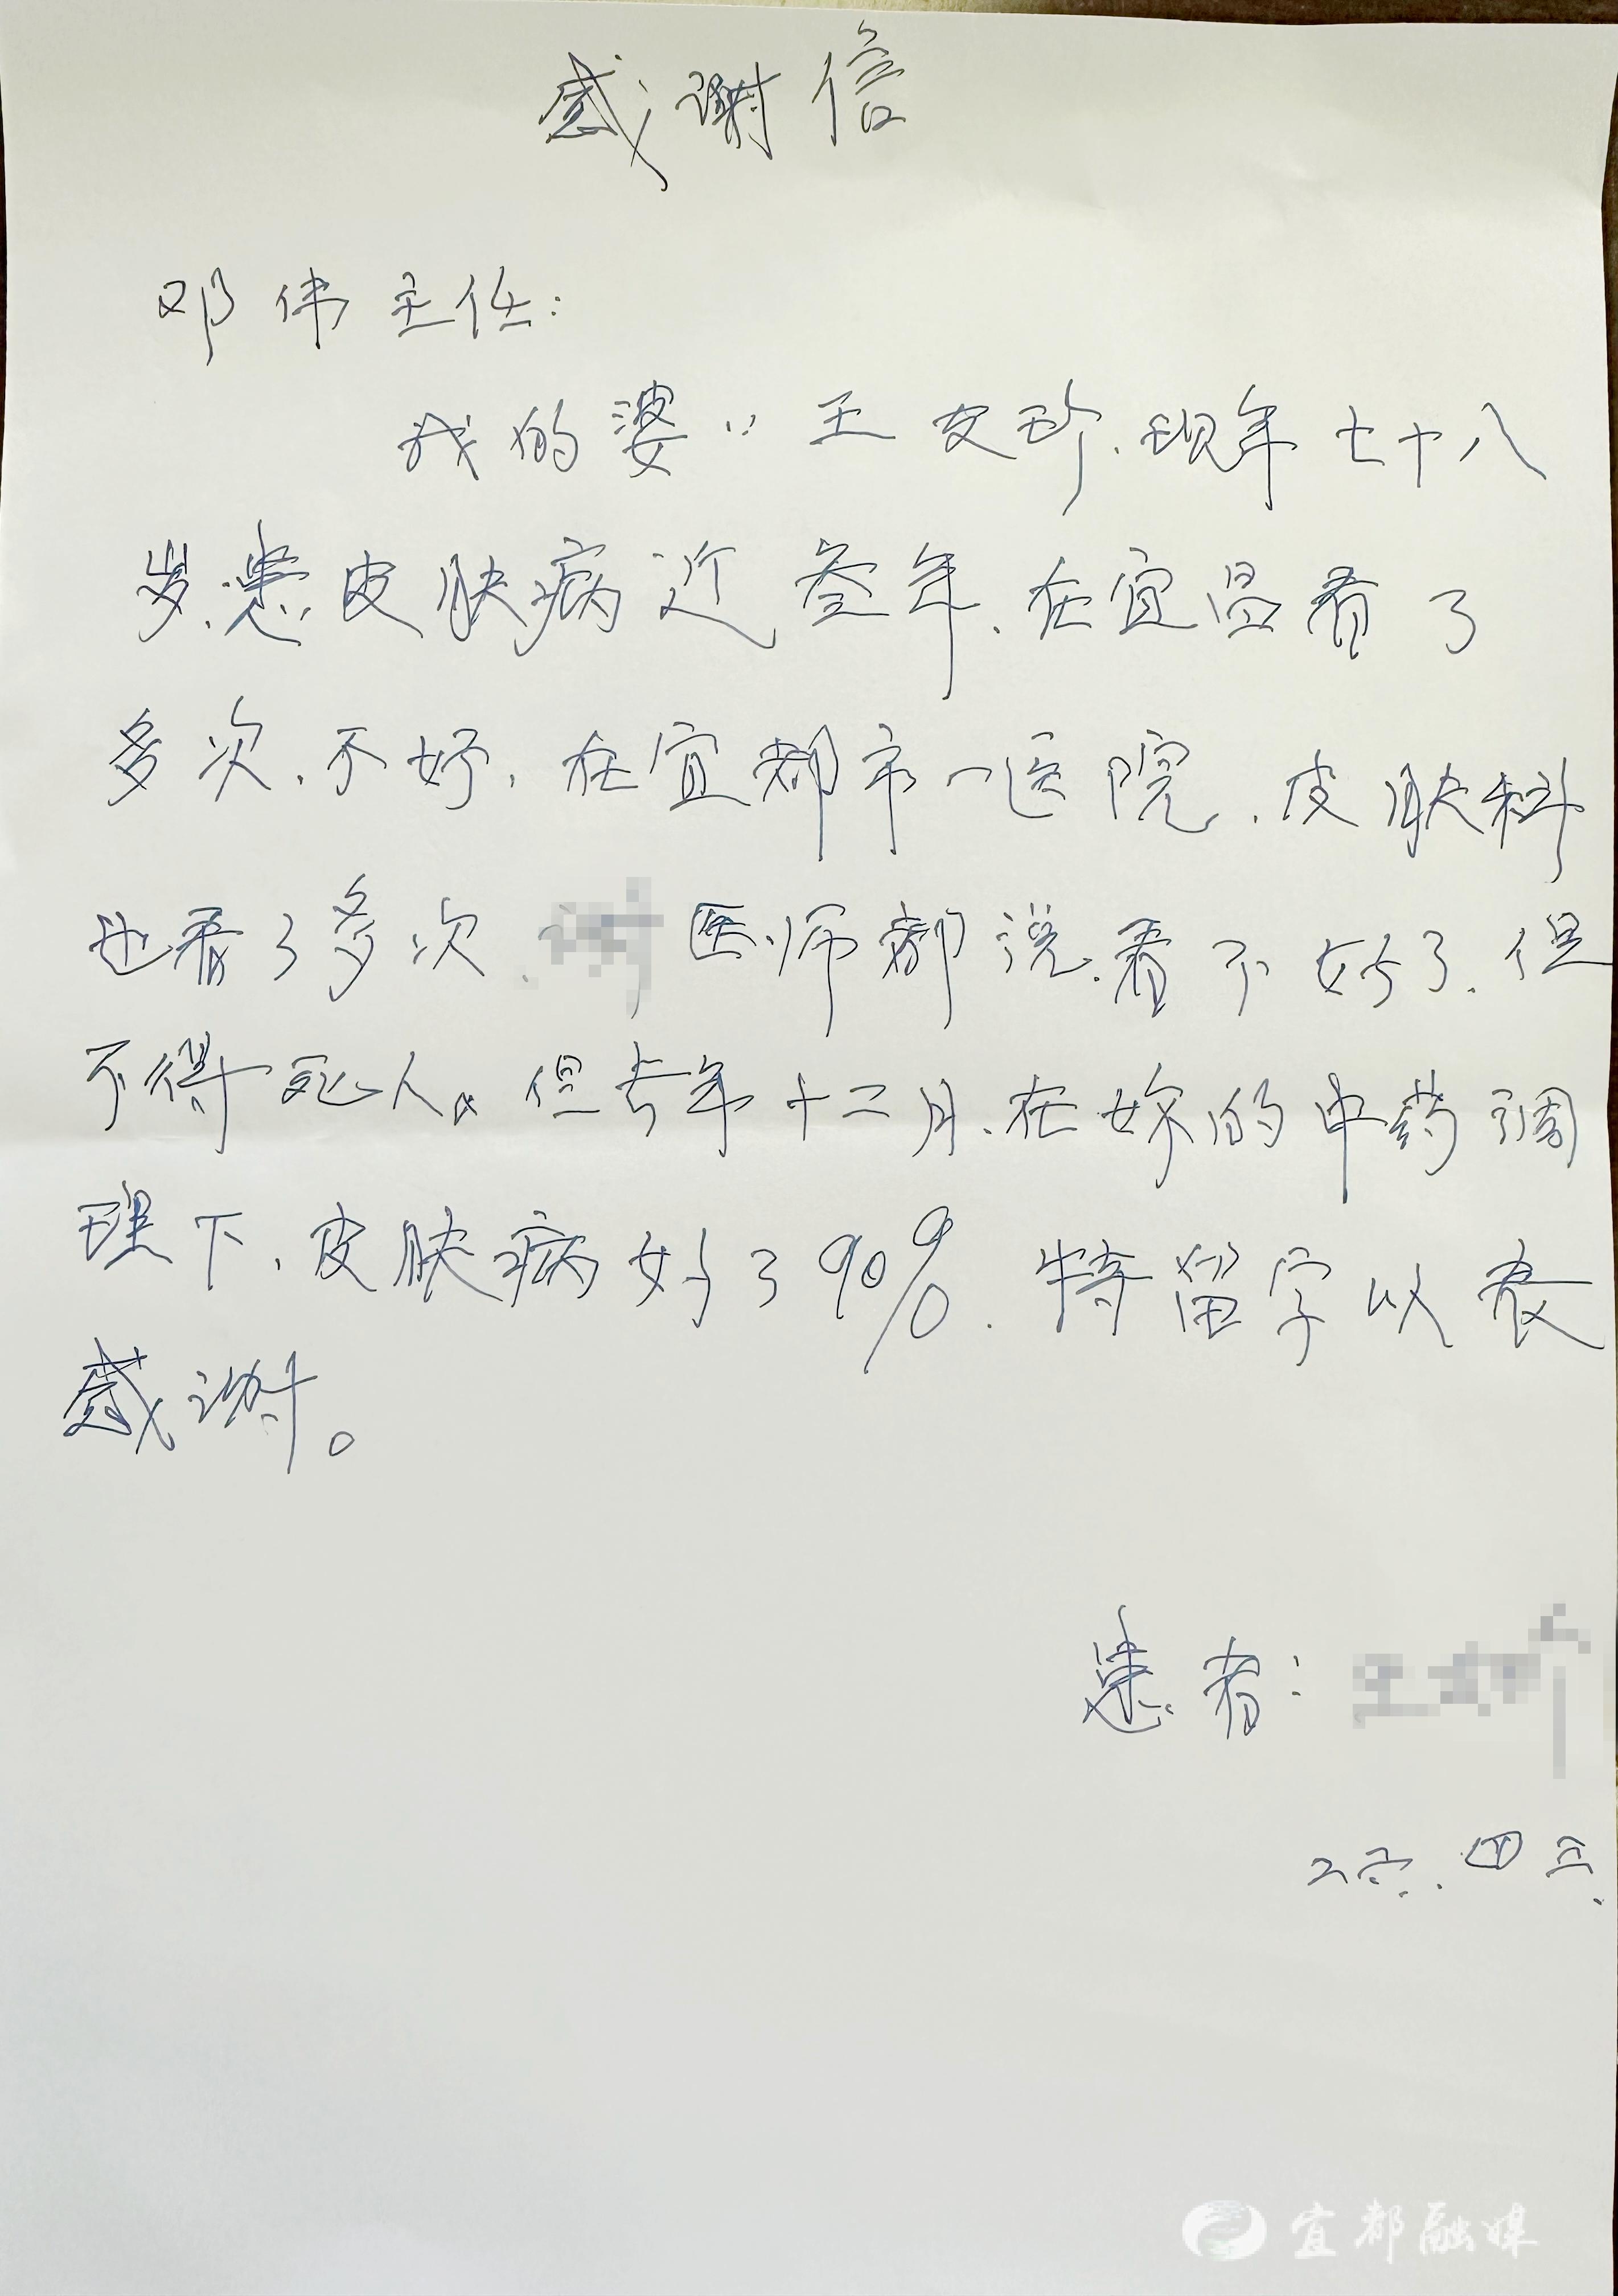 感谢信
邓伟主任：
我的婆〃王友珍.现年七十八
岁.患皮肤病近叁年.在宜昌看了
多次.不好.在宜都市一医院.皮肤科
也看了多次.医师都说.看不好了.但
不得死人。但去年十二月.在妳的中药调
理下.皮肤病好了90%.特留字以表
感谢。
患者：
二六.四.三.
宜都融媒